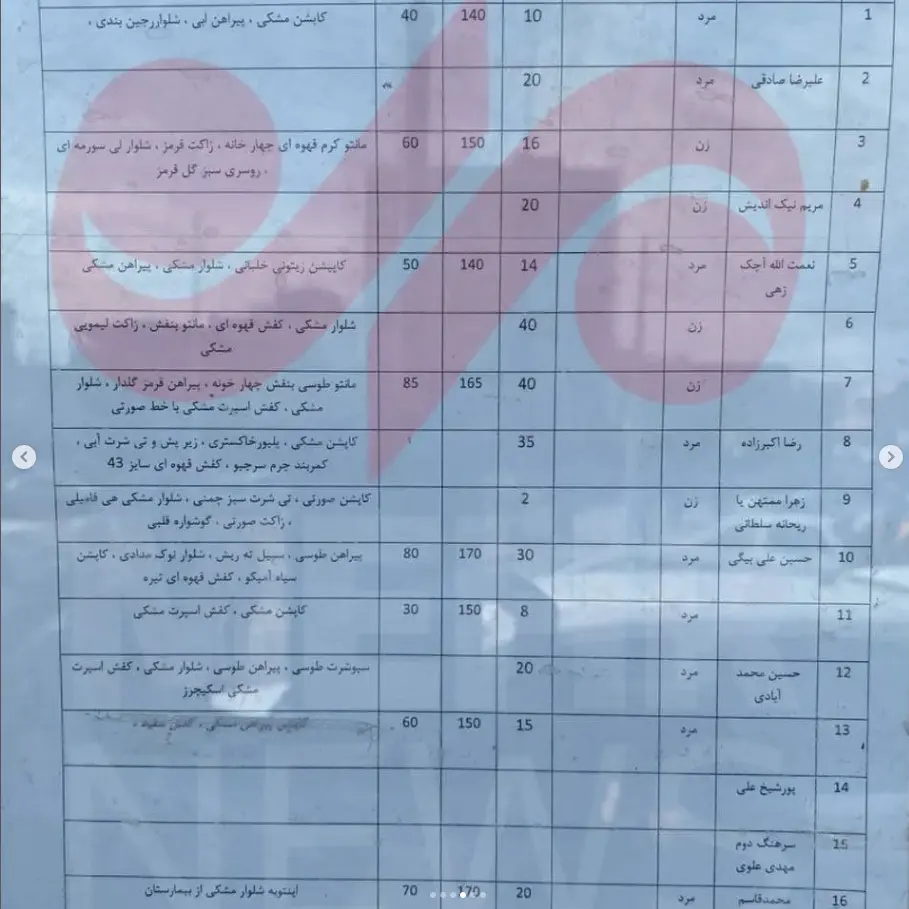 1 مرد 10 140 40 کاپشن مشکی ، پیراهن آبی ، شلوارجین بندی ،
2 علیرضا صادقی مرد 20
3 زن 16 150 60 مانتو کرم قهوه ای چهار خانه ، ژاکت قرمز ، شلوار لی سورمه ای
، روسری سبز گل قرمز
4 مریم نیک اندیش زن 20
5 نعمت الله آچک مرد 14 140 50 کاپیشن زیتونی خلبانی ، شلوار مشکی ، پیراهن مشکی
زهی
6 زن 40 شلوار مشکی ، کفش قهوه ای ، مانتو بنفش ، ژاکت لیمویی
مشکی
7 زن 40 165 85 مانتو طوسی بنفش چهار خونه ، پیراهن قرمز گلدار ، شلوار
مشکی ، کفش اسپرت مشکی با خط صورتی
8 رضا اکبرزاده مرد 35 کاپشن مشکی ، پلیورخاکستری ، زیر پش و تی شرت آبی ،
کمربند چرم سرجیو ، کفش قهوه ای سایز 43
9 زهرا ممتهن یا زن 2 کاپشن صورتی ، تی شرت سبز چمنی ، شلوار مشکی هی فامیلی
ریحانه سلطانی ، ژاکت صورتی ، گوشواره قلبی
10 حسین علی بیگی مرد 30 170 80 پیراهن طوسی ، سبیل ته ریش ، شلوار نوک مدادی ، کاپشن
سیاه آمیکو ، کفش قهوه ای تیره
11 مرد 8 150 30 کاپشن مشکی ، کفش اسپرت مشکی
12 حسین محمد مرد 20 سیوشرت طوسی ، پیراهن طوسی ، شلوار مشکی ، کفش اسپرت
آبادی مشکی اسکیچرز
13 مرد 15 150 60 پیراهن مشکی ، کفش سفید ،
14 پورشیخ علی
15 سرهنگ دوم
مهدی علوی
16 محمدقاسم مرد 20 170 70 اینتوبه شلوار مشکی از بیمارستان
NEWS